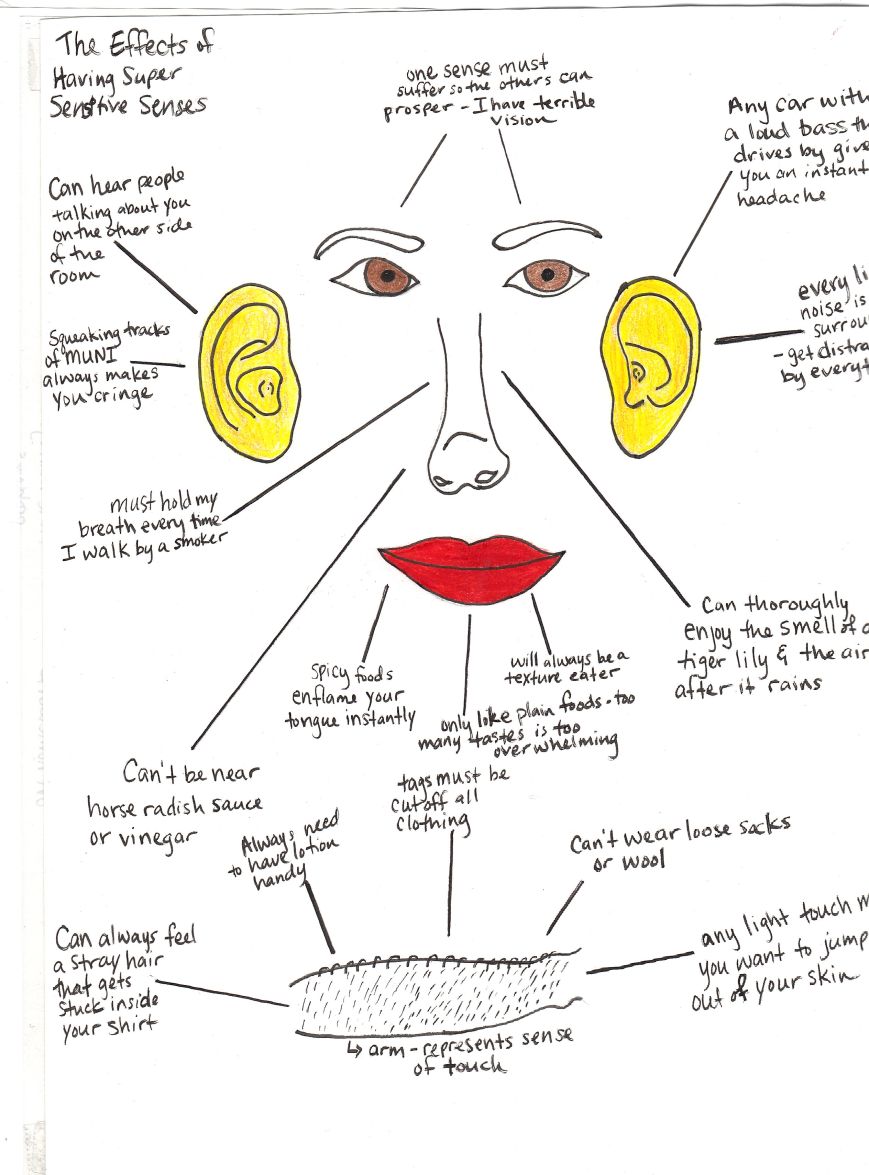 The Effects of
Having Super
Sensitive Senses
one sense must
suffer so the others can
prosper - I have terrible
vision
Any car with
a loud bass th
drives by give
you an instant
headache
Can hear people
talking about you
on the other side
of the
room
every li
noise is
surrou
- get distra
by everyt
Squeaking tracks
of MUNI
always makes
you cringe
must hold my
breath every time
I walk by a smoker
Can thoroughly
enjoy the smell of a
tiger lily & the air
after it rains
spicy foods
enflame your
tongue instantly
will always be a
texture eater
only like plain foods - too
many tastes is too
overwhelming
Can't be near
horse radish sauce
or vinegar
tags must be
cut off all
clothing
Always need
to have lotion
handy
Can't wear loose socks
or wool
Can always feel
a stray hair
that gets
stuck inside
your shirt
any light touch m
you want to jump
out of your skin
↳ arm - represents sense
of touch